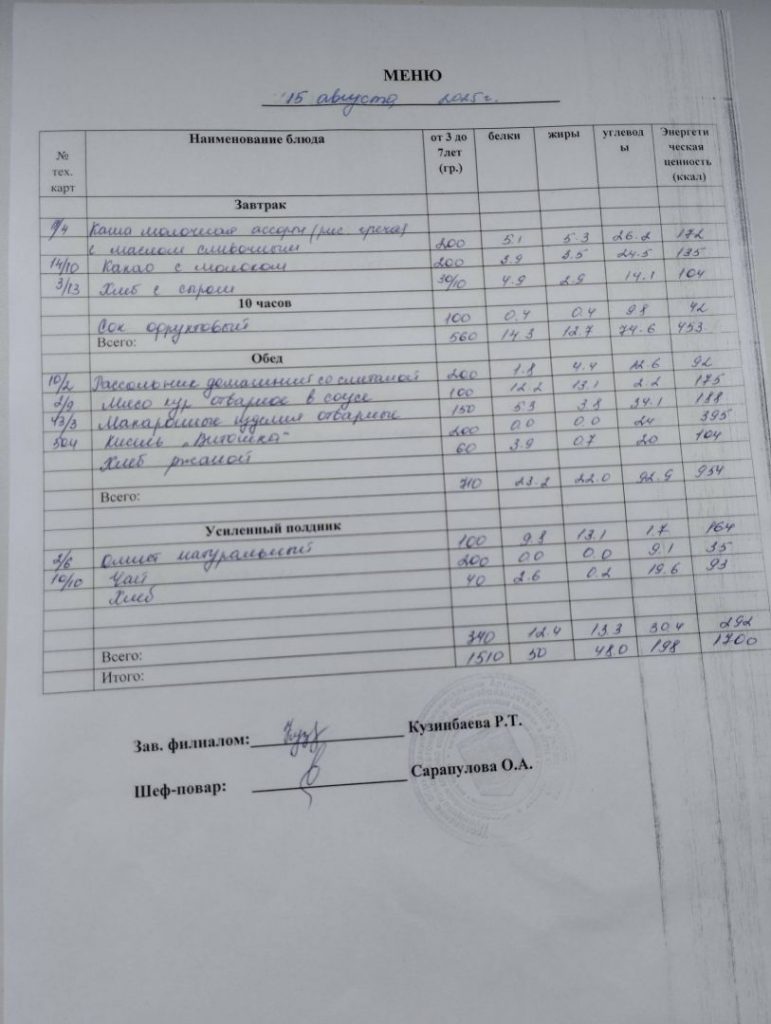 МЕНЮ
15 августа 2025 г.
№ тех. карт Наименование блюда от 3 до 7лет (гр.) белки жиры углеводы Энергетическая ценность (ккал)
Завтрак
9/4 Каша молочная ассорти (рис. греча)
с маслом сливочным 200 5.1 5.3 26.2 172
14/10 Какао с молоком 200 3.9 3.5 24.5 135
3/13 Хлеб с сыром 30/10 4.9 2.9 14.1 104
10 часов
Сок фруктовый 100 0.4 0.4 9.8 42
Всего: 560 14.3 12.7 74.6 453
Обед
10/2 Рассольник домашний со сметаной 200 1.8 4.4 12.6 92
2/9 Мясо кур отварное в соусе 100 12.2 13.1 2.2 175
43/3 Макаронные изделия отварные 150 5.3 3.8 34.1 188
304 Кисель „Витошка" 200 0.0 0.0 24 395
Хлеб ржаной 60 3.9 0.7 20 104
Всего: 710 23.2 22.0 92.9 954
Усиленный полдник
2/6 Омлет натуральный 100 9.8 13.1 1.7 164
10/10 Чай 200 0.0 0.0 9.1 35
Хлеб 40 2.6 0.2 19.6 93
Всего: 340 12.4 13.3 30.4 292
Итого: 1510 50 48.0 198 1700
Зав. филиалом: Кузинбаева Р.Т.
Шеф-повар: Сарапулова О.А.